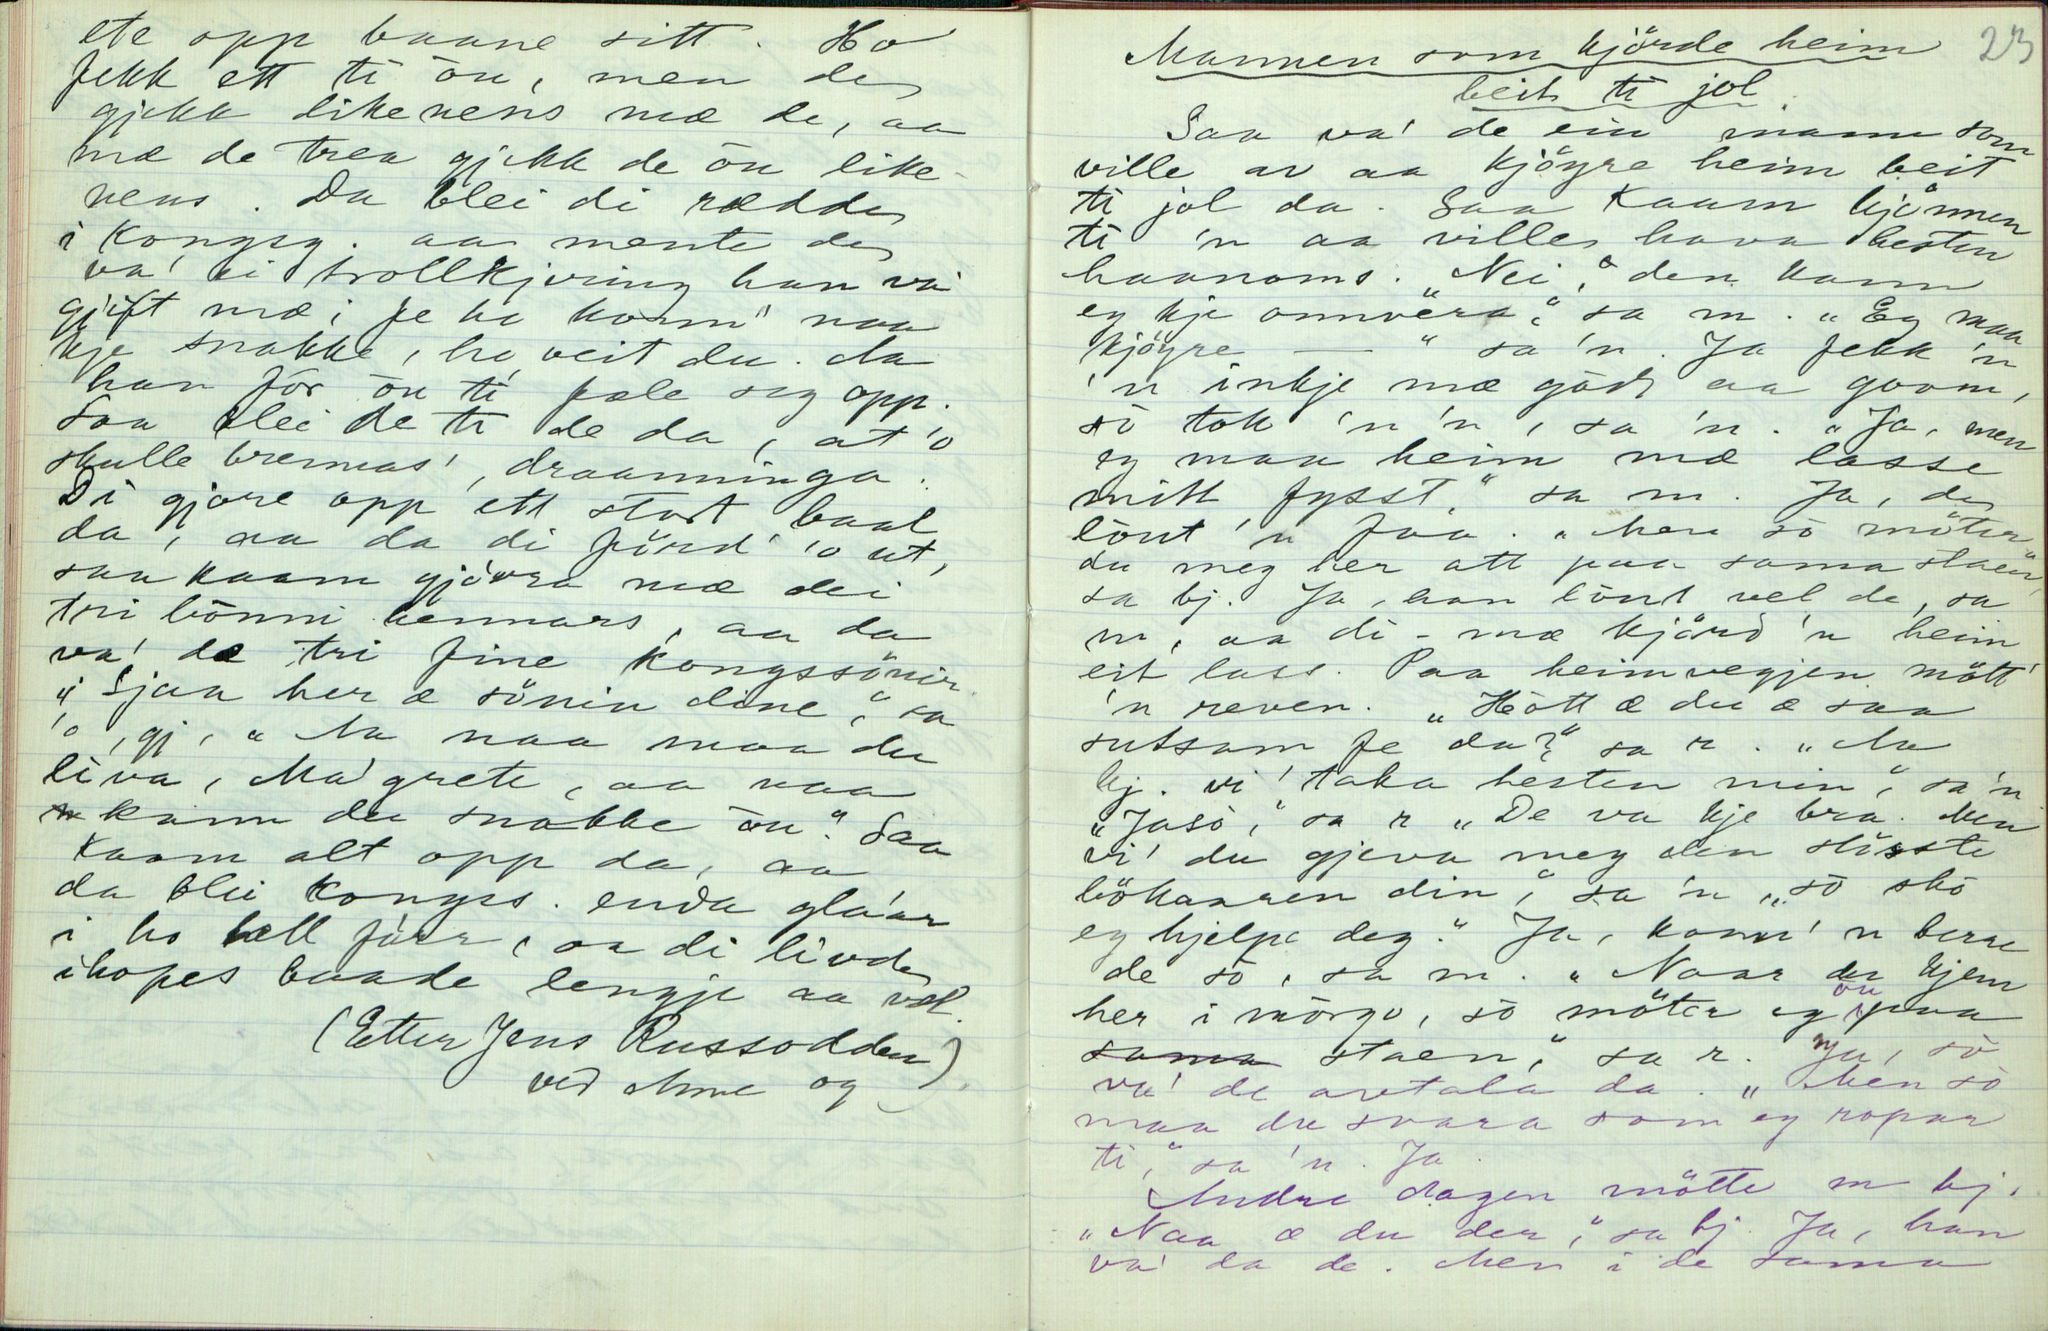 ete opp baane sitt. Ho
fekk ett ti ôn, men de
gjekk likevens mæ de, aa
mæ de trea gjekk de ôn like-
vens. Da blei di rædde
i kongsg. aa mente de
va' ei trollkjering han va
gjift mæ; fe ho konn' naa
kje snakke, ho veit du. Ma
han fór ôn ti fale seg opp.
Saa blei de ti de da, at 'o
skulle brennas', draanninga.
Di gjore opp ett stort baal
da, aa da di förd' 'o ut,
saa kaam gjövra mæ dei
tri bônni hennars, aa da
va' de tri fine kongssönir.
"Sjaa her æ sönin dine," sa
'o, gj, "Aa naa maa du
liva, Ma'grete, aa naa
kann du snakke ôn." Saa
kaam alt opp da, aa
da blei kongss. enda gla'ar
i ho hell fårr, aa di livde
ihopes baade lengje aa væl.
(Etter Jens Russodden
ved Anne og ).
23
Mannen som kjörde heim
beit ti jol.
Saa va' de ein mann som
ville av aa kjöyre heim beit
ti jol da. Saa kaam bjönnen
ti 'n aa ville hava hesten
haanoms. "Nei, den kann
eg kje onnvëra," sa m. "Eg maa
kjöyre — " sa 'n. Ja fekk 'n
'n inkje mæ gôdt aa goom,
sô tok 'n 'n, sa 'n. "Ja, men
eg maa heim mæ lasse
mitt fysst," sa m. Ja, de
lônt 'n faa. "Men sô möter
du meg her att paa sama staen,"
sa bj. Ja, han lônt vel de, sa
m, aa di-mæ kjörd 'n heim
eit lass. Paa heimvegjen mött'
'n reven. "Hôtt æ du æ saa
sutsam fe da?" sa r. "Aa
bj. vi' taka hesten min," sa 'n
"Jasô," sa r "De va kje bra. Men
vi' du gjeva meg den stôsste
bökaaren din," sa 'n, "sô skô
eg hjelpe deg." Ja, konn' 'n berre
de sô, sa m. "Naar du kjem
her i môrgo, sô möter eg ôn paa
sama staen," sa r. Ja, sô
va' de avtala da. "Men sô
maa du svara som eg ropar
ti," sa 'n. Ja.
Andre dagen mötte m bj.
"Naa æ du der," sa bj. Ja, han
va' da de. Men i de sama